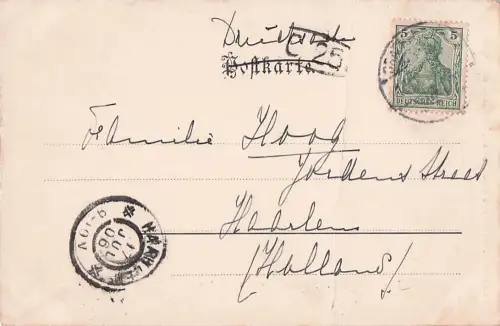 Drucksache
C 25
Postkarte.
5 5
DEUTSCHES REICH
Familie Hoog
Jordens Straat
Haarlem
(Holland)
HAARLEM